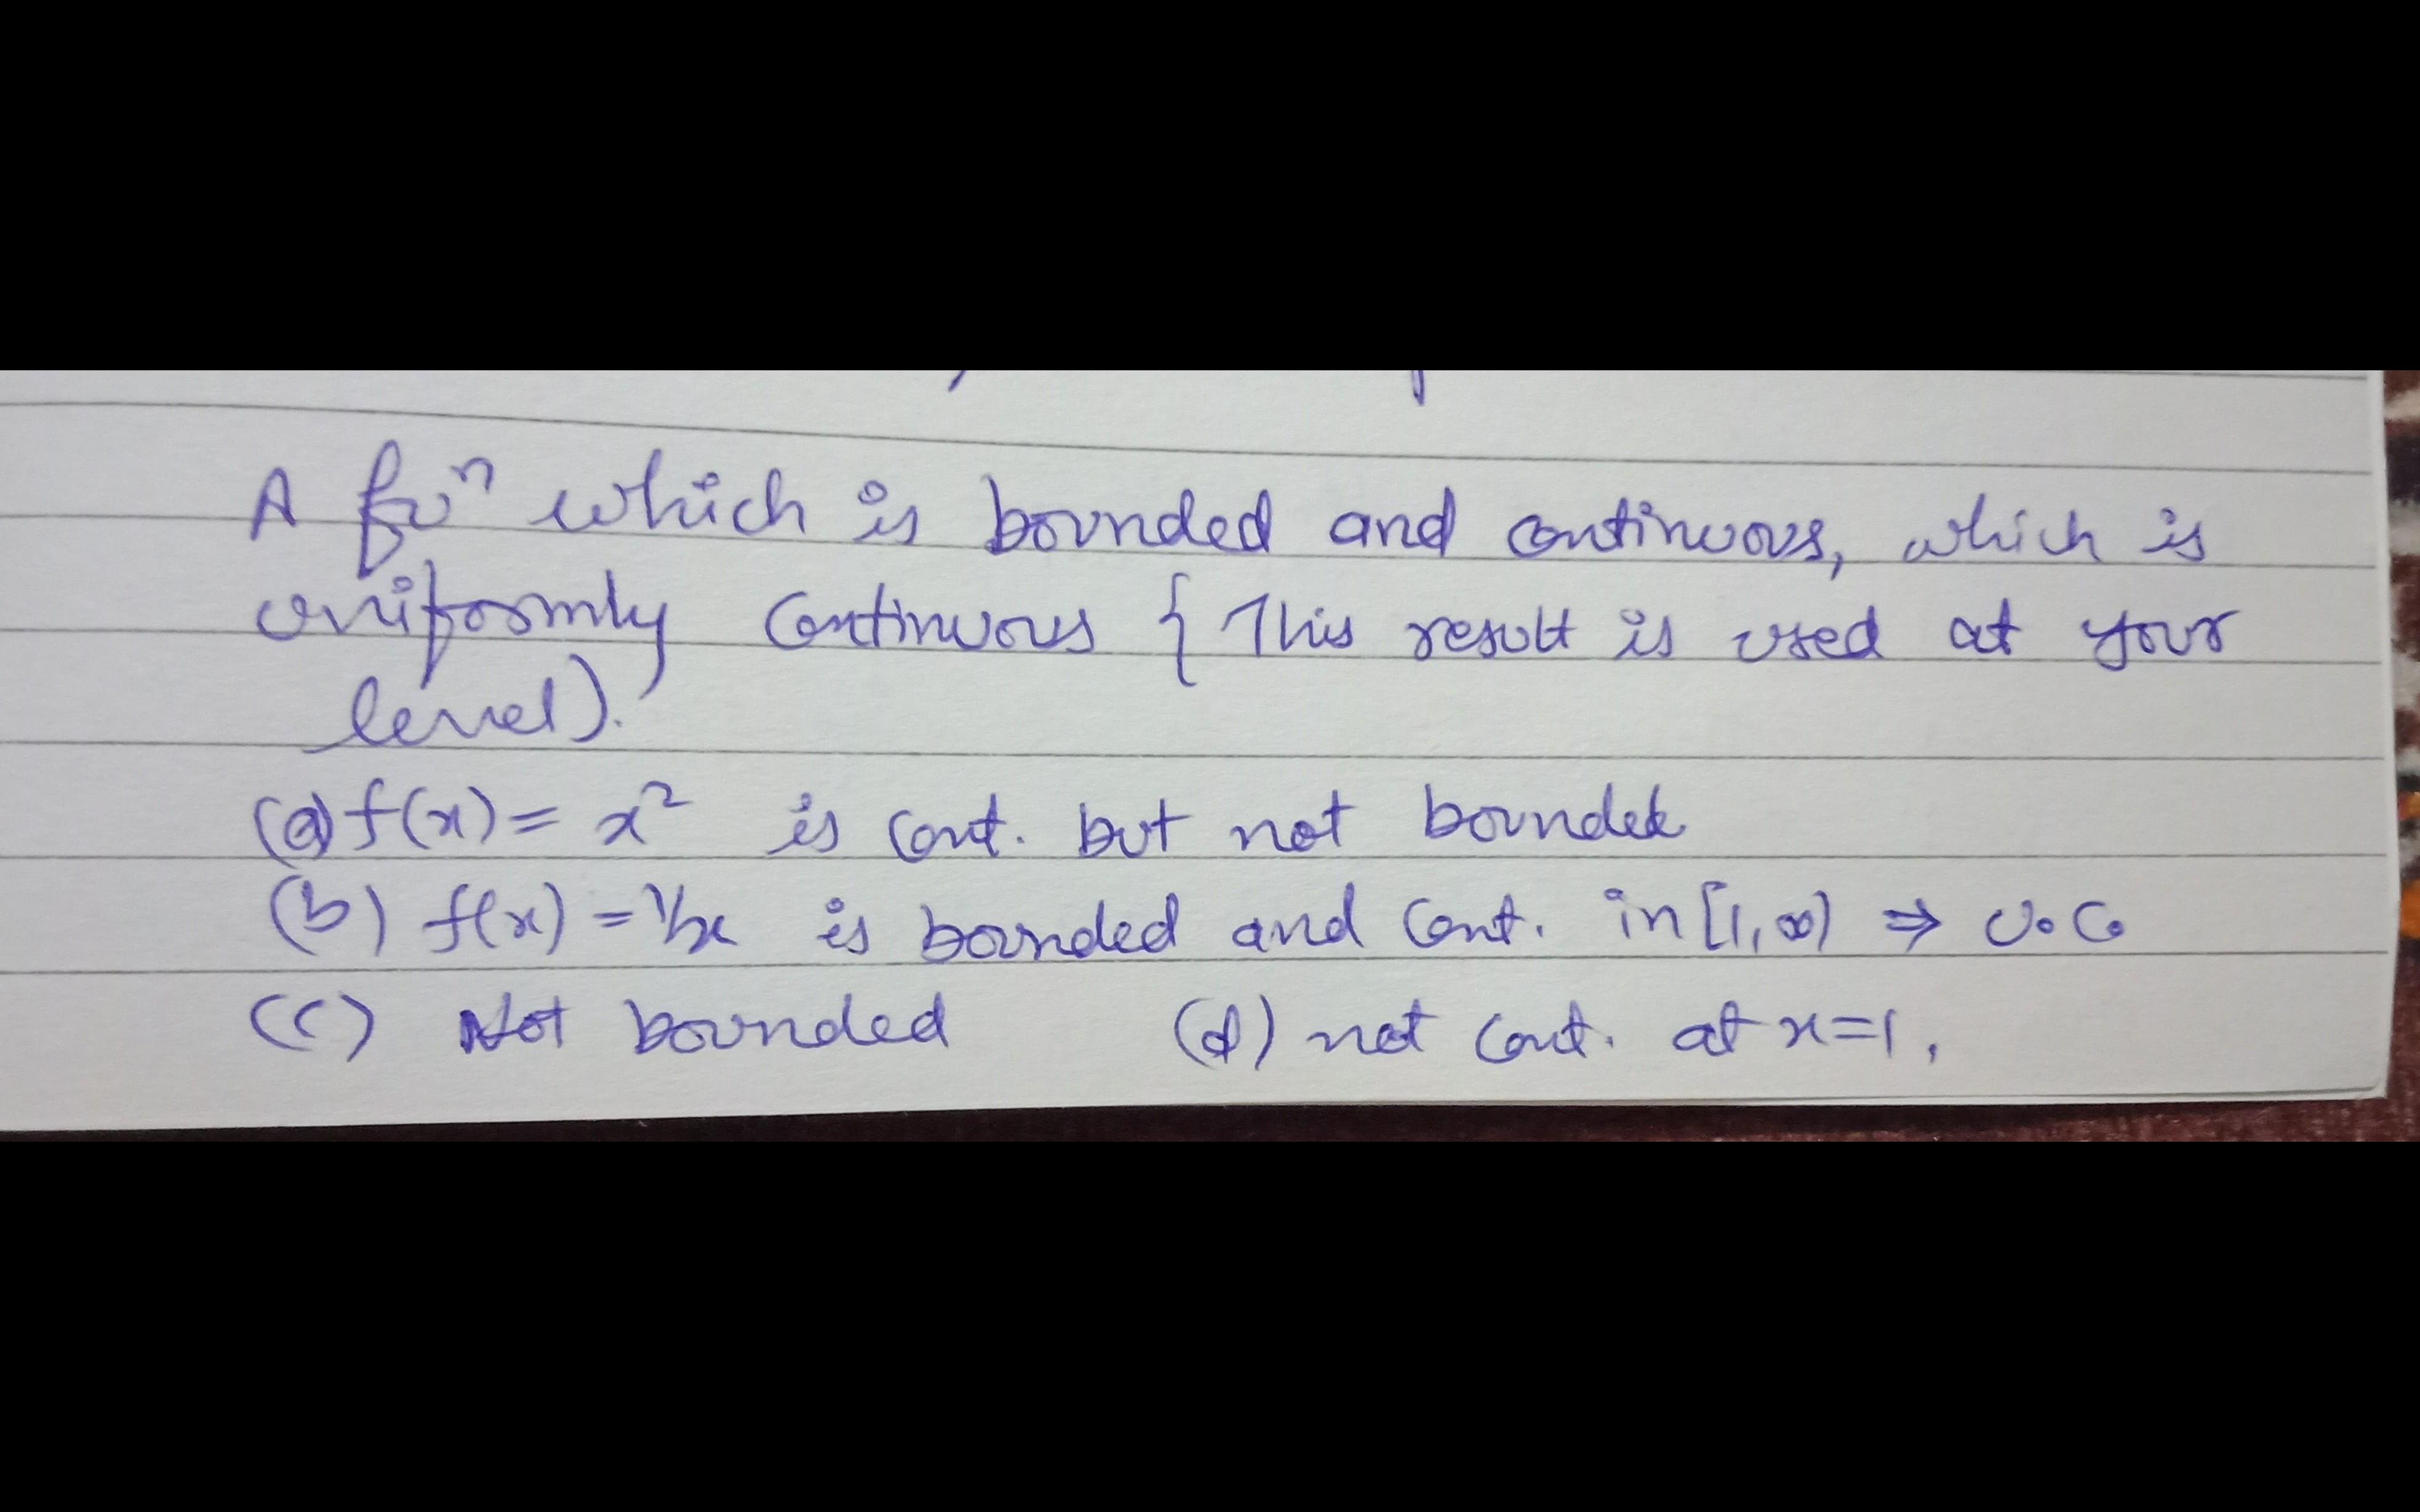 A fuⁿ which is bounded and continuous, which is
uniformly continuous { This result is used at your
level).
(a) f(x) = x² is cont. but not bounded
(b) f(x) = 1/x is bounded and cont. in [1, ∞) ⇒ U.C.
(c) Not bounded (d) not cont. at x=1.